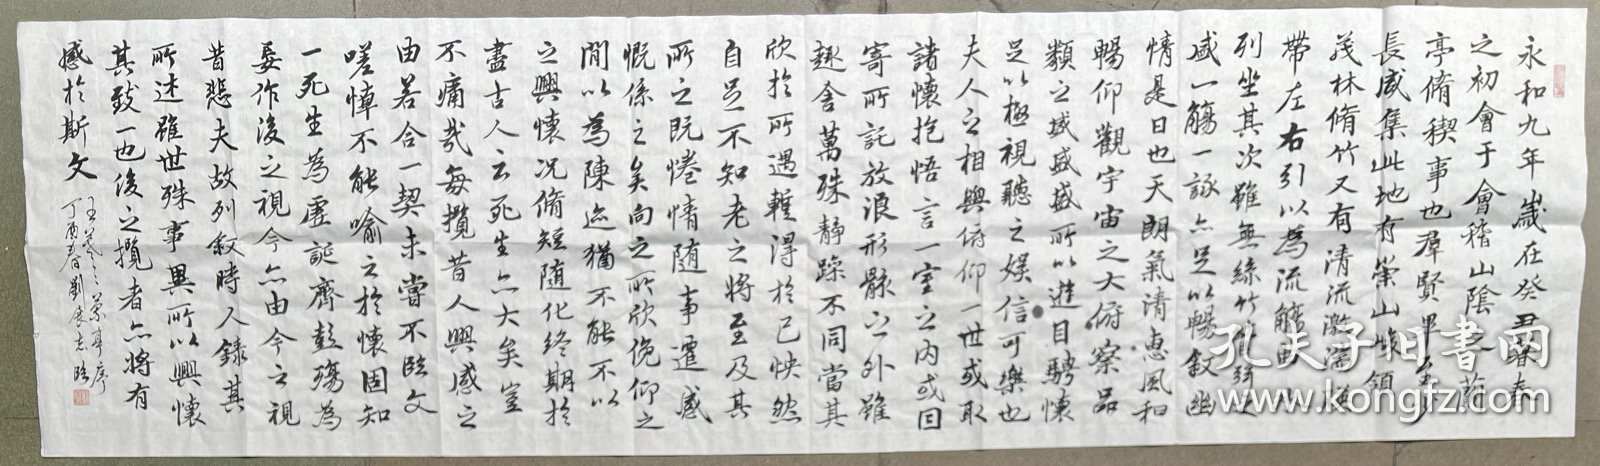 永和九年歲在癸丑暮春
之初會于會稽山陰之蘭
亭脩稧事也羣賢畢至少
長咸集此地有崇山峻領
茂林脩竹又有清流激湍映
帶左右引以為流觴曲水
列坐其次雖無絲竹管弦之
盛一觴一詠亦足以暢敘幽
情是日也天朗氣清惠風和
暢仰觀宇宙之大俯察品
類之盛盛盛所以遊目騁懷
足以極視聽之娛信可樂也
夫人之相與俯仰一世或取
諸懷抱悟言一室之內或因
寄所託放浪形骸之外雖
趣舍萬殊靜躁不同當其
欣於所遇輊得於己快然
自足不知老之將至及其
所之既惓情隨事遷感
慨係之矣向之所欣俛仰之
閒以為陳迹猶不能不以
之興懷況脩短隨化終期於
盡古人云死生亦大矣豈
不痛哉每攬昔人興感之
由若合一契未嘗不臨文
嗟悼不能喻之於懷固知
一死生為虛誕齊彭殤為
妄作後之視今亦由今之視
昔悲夫故列敘時人錄其
所述雖世殊事異所以興懷
其致一也後之攬者亦將有
感於斯文
王羲之蘭亭序
丁酉春劉長志臨
孔夫子旧书网
www.kongfz.com